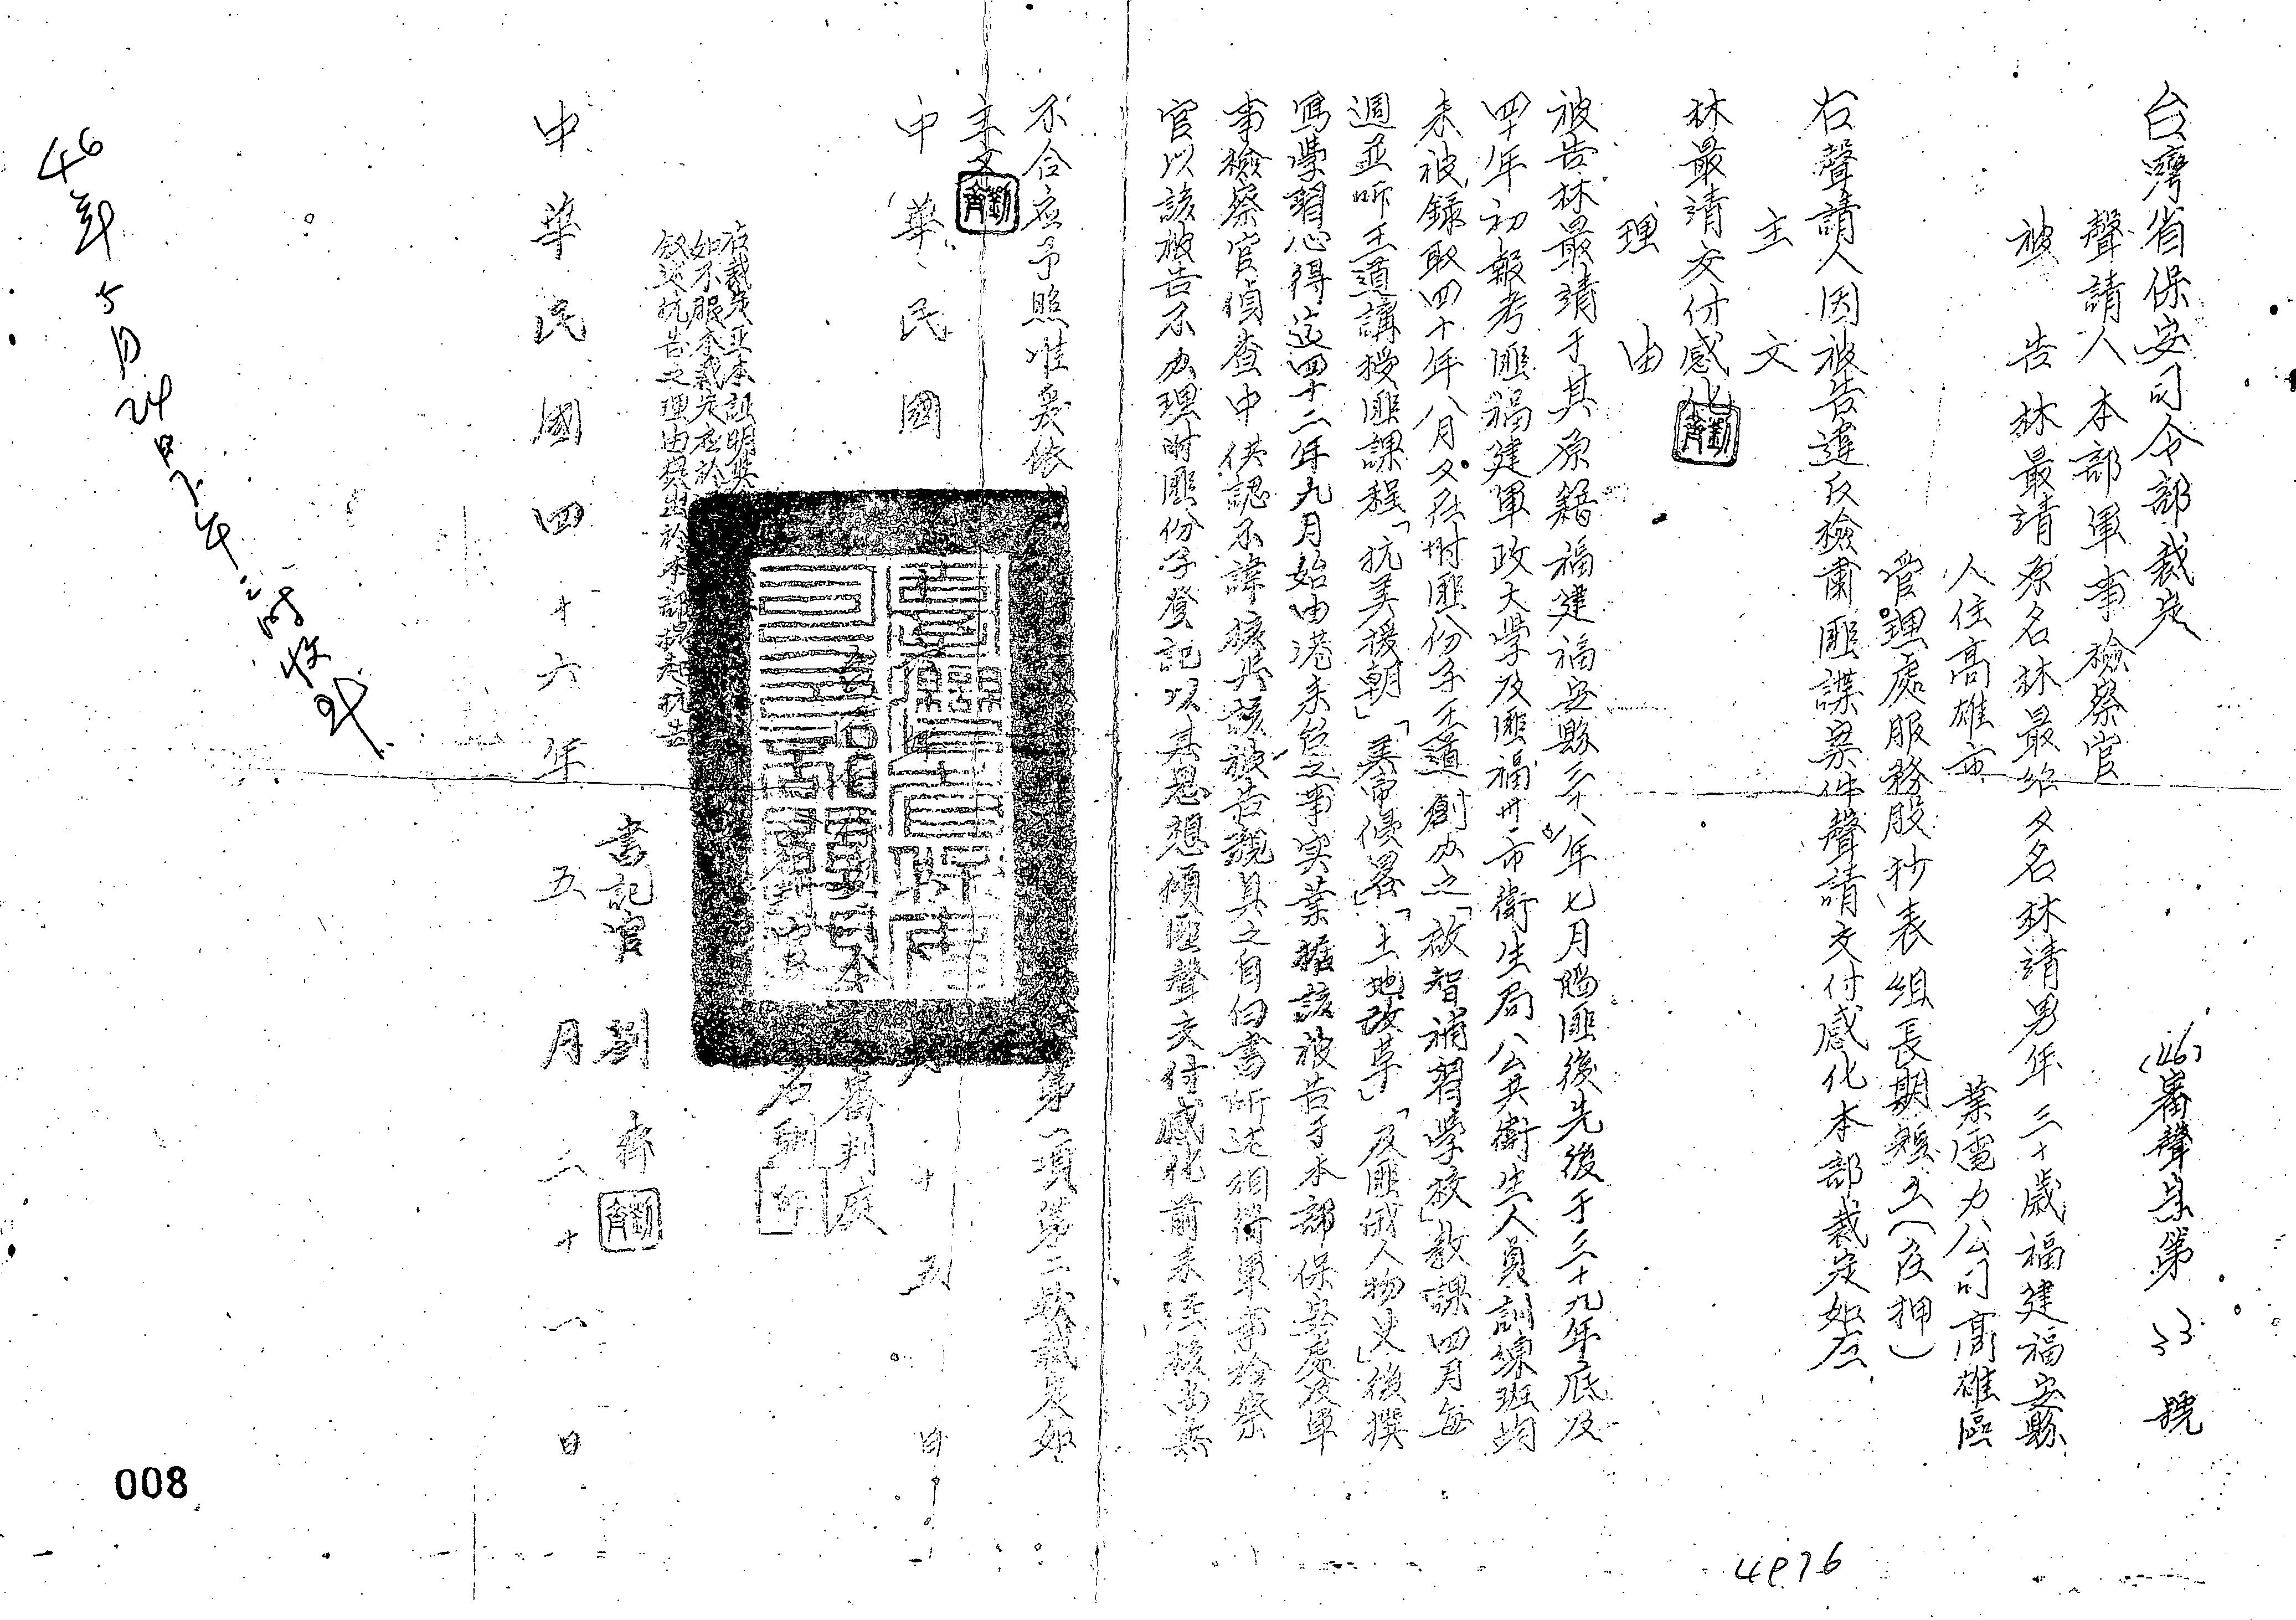 台灣省保安司令部裁定
(46)審聲字第33號
聲請人 本部軍事檢察官
被告 林最清 原名林最 又名林清 男年三十歲福建福安縣
人住高雄市 業電力公司高雄區
管理處服務股抄表組長期短工(在押)
右聲請人因被告違反檢肅匪諜案件聲請交付感化本部裁定如左
主文
林最清交付感化
理由
被告林最清于其原籍福建福安縣三十八年七月陷匪後先後于三十九年底及
四十年初報考匪福建軍政大學及匪福州市衛生局公共衛生人員訓練班均
未被錄取四十年八月又在附匪份子王道創办之「啟智補習學校」教課四月每
週並听王道講授匪課程「抗美援朝」「美帝侵畧」「土地改革」「及匪俄人物史」後撰
寫學習心得迄四十二年九月始由港來台之事实業據該被告于本部保安處及軍
事檢察官偵查中供認不諱核與該被告親具之自白書所述相符軍事檢察
官以該被告不办理附匪份子登記以其思想傾匪聲交付感化前來經核尚無
不合应予照准爰依
第一項第二款裁定如
主文
中華民國 月十五日
審判庭
右裁定正本證明與
如不服本裁定应於
敘述抗告之理由提出於本部提起抗告
書記官 劉齊
中華民國四十六年五月二十八日
46年5月24日下午二時收到
008
4976